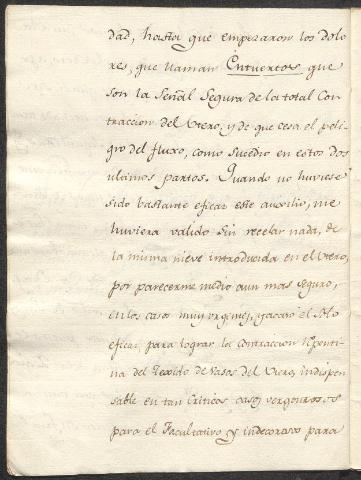 dad, hasta que empezaron los dolo
res, que llaman Entuertos que
son la Señal Segura de la total Con
traccion del Utero, y de que cesa el peli
gro del fluxo, como sucedio en estos dos
ultimos partos. Quando no huviese
sido bastante eficaz este auxilio, me
huviera valido sin recelar nada, de
la misma nieve introducida en el Utero,
por parecerme medio aun mas seguro,
en los casos muy urgentes, y acaso el Solo
eficaz para lograr la contraccion repenti
na del Texido de Vasos del Utero, indispen
sable en tan Criticos casos, vergonzosos
para el Facultativo, y indecoroso para